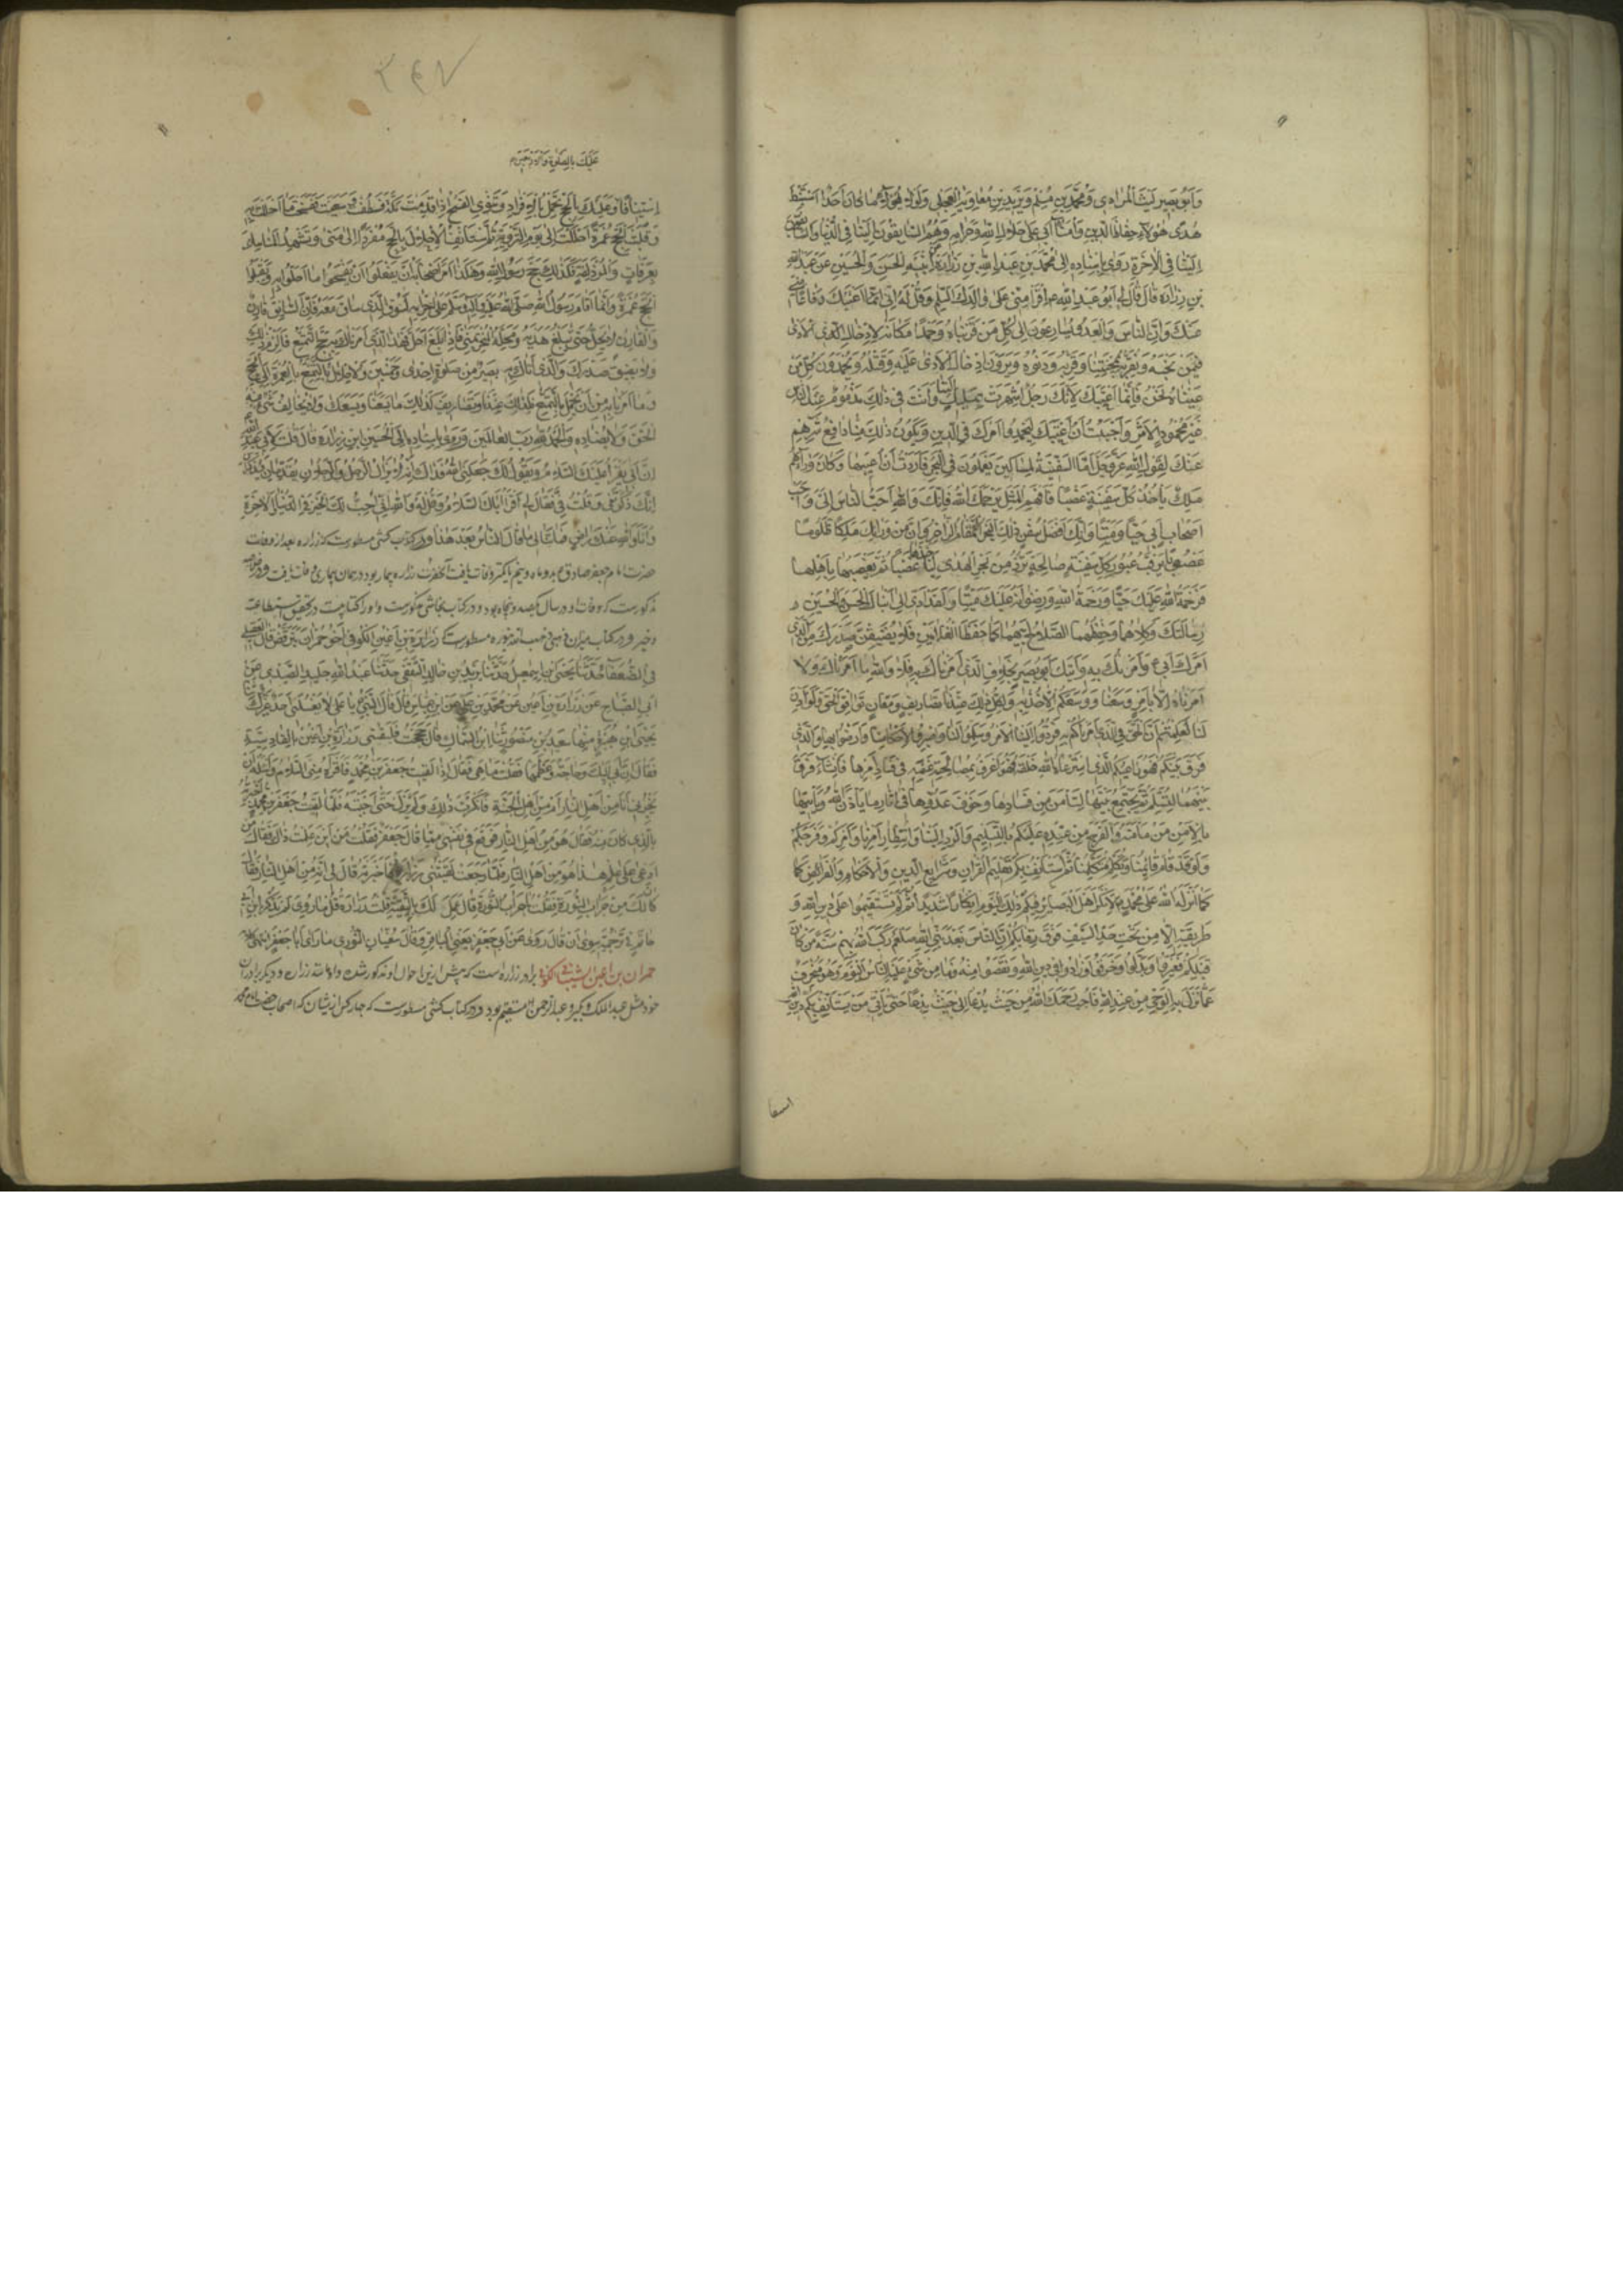 وَأَبُو بَصِيرٍ لَيْثُ الْمُرَادِي وَمُحَمَّدُ بْنُ مُسْلِمٍ وَبُرَيْدُ بْنُ مُعَاوِيَةَ الْعِجْلِي وَلَوْلَا هَؤُلَاءِ مَا كَانَ أَحَدٌ اسْتَنْبَطَ
هُدًى هَؤُلَاءِ حُفَّاظُ الدِّينِ وَأُمَنَاءُ أَبِي عَلَى حَلَالِ اللهِ وَحَرَامِهِ وَهُمُ السَّابِقُونَ إِلَيْنَا فِي الدُّنْيَا وَالسَّابِقُونَ
إِلَيْنَا فِي الْآخِرَةِ رَوَى بِإِسْنَادِهِ إِلَى مُحَمَّدِ بْنِ عَبْدِ اللهِ بْنِ زُرَارَةَ وَابْنَيْهِ الْحَسَنِ وَالْحُسَيْنِ عَنْ عَبْدِ اللهِ
بْنِ زُرَارَةَ قَالَ قَالَ لِي أَبُو عَبْدِ اللهِ ع اقْرَأْ مِنِّي عَلَى وَالِدِكَ السَّلَامَ وَقُلْ لَهُ إِنِّي إِنَّمَا أَعِيبُكَ دِفَاعًا مِنِّي
عَنْكَ وَإِنَّ النَّاسَ وَالْعَدُوَّ يُسَارِعُونَ إِلَى كُلِّ مَنْ قَرَّبْنَاهُ وَحَمِدْنَا مَكَانَهُ لِإِدْخَالِ الْأَذَى
فِيمَنْ نُحِبُّهُ وَنُقَرِّبُهُ لِمَحَبَّتِنَا وَقُرْبِهِ وَدُنُوِّهِ وَيَرَوْنَ إِدْخَالَ الْأَذَى عَلَيْهِ وَقَتْلَهُ وَيَحْمَدُونَ كُلَّ مَنْ
عِبْنَاهُ نَحْنُ فَإِنَّمَا أَعِيبُكَ لِأَنَّكَ رَجُلٌ اشْتَهَرْتَ بِمَيْلِكَ إِلَيْنَا وَأَنْتَ فِي ذَلِكَ مَذْمُومٌ عِنْدَ النَّاسِ
غَيْرُ مَحْمُودِ الْأَثَرِ وَأَحْبَبْتُ أَنْ أَعِيبَكَ لِيَحْمَدُوا أَمْرَكَ فِي الدِّينِ وَيَكُونُ ذَلِكَ مِنَّا دَافِعُ شَرِّهِمْ
عَنْكَ لِقَوْلِ اللهِ عَزَّ وَجَلَّ أَمَّا السَّفِينَةُ لِمَسَاكِينَ يَعْمَلُونَ فِي الْبَحْرِ فَأَرَدْتُ أَنْ أَعِيبَهَا وَكَانَ وَرَاءَهُمْ
مَلِكٌ يَأْخُذُ كُلَّ سَفِينَةٍ غَصْبًا فَافْهَمِ الْمَثَلَ يَرْحَمُكَ اللهُ فَإِنَّكَ وَاللهِ أَحَبُّ النَّاسِ إِلَيَّ وَأَحَبُّ
أَصْحَابِ أَبِي حَيًّا وَمَيِّتًا وَإِنَّكَ أَفْضَلُ سُفُنِ ذَلِكَ الْبَحْرِ الْقَمْقَامِ الزَّاخِرِ وَإِنَّ مِنْ وَرَائِكَ مَلِكًا ظَلُومًا
غَصُوبًا يَرْقُبُ عُبُورَ كُلِّ سَفِينَةٍ صَالِحَةٍ تَرِدُ مِنْ بَحْرِ الْهُدَى لِيَأْخُذَهَا غَصْبًا ثُمَّ يَغْصِبُهَا بِأَهْلِهَا
فَرَحْمَةُ اللهِ عَلَيْكَ حَيًّا وَرَحْمَةُ اللهِ وَرِضْوَانُهُ عَلَيْكَ مَيِّتًا وَلَقَدْ أَدَّى إِلَيَّ ابْنَاكَ الْحَسَنُ وَالْحُسَيْنُ
رِسَالَتَكَ وَكَلَأَهُمَا وَحَفِظَهُمَا لِصَلَاحِ أَبِيهِمَا كَمَا حَفِظَ الْغُلَامَيْنِ فَلَا يَضِيقَنَّ صَدْرُكَ مِنَ الَّذِي
أَمَرَكَ أَبِي ع وَأَمَرْتُكَ بِهِ وَأَتَاكَ أَبُو بَصِيرٍ بِخِلَافِ الَّذِي أَمَرْنَاكَ بِهِ فَلَا وَاللهِ مَا أَمَرْنَاكَ وَلَا
أَمَرْنَاهُ إِلَّا بِأَمْرٍ وَسِعَنَا وَوَسِعَكُمُ الْأَخْذُ بِهِ وَلِكُلِّ ذَلِكَ عِنْدَنَا تَصَارِيفُ وَمَعَانٍ تُوَافِقُ الْحَقَّ وَلَوْ أُذِنَ
لَنَا لَعَلِمْتُمْ أَنَّ الْحَقَّ فِي الَّذِي أَمَرْنَاكُمْ بِهِ فَرُدُّوا إِلَيْنَا الْأَمْرَ وَسَلِّمُوا لَنَا وَاصْبِرُوا لِأَحْكَامِنَا وَارْضَوْا بِهَا وَالَّذِي
فَرَّقَ بَيْنَكُمْ فَهُوَ رَاعِيكُمُ الَّذِي اسْتَرْعَاهُ اللهُ خَلْقَهُ وَهُوَ أَعْرَفُ بِمَصْلَحَةِ غَنَمِهِ فِي فَسَادِ أَمْرِهَا فَإِنْ شَاءَ فَرَّقَ
بَيْنَهُمَا لِتَسْلَمَ ثُمَّ يَجْمَعُ بَيْنَهَا لِتَأْمَنَ مِنْ فَسَادِهَا وَخَوْفِ عَدُوِّهَا فِي آثَارِ مَا يَأْذَنُ اللهُ وَيَأْتِيهَا
بِالْأَمْنِ مِنْ مَأْمَنِهِ وَالْفَرَجِ مِنْ عِنْدِهِ عَلَيْكُمْ بِالتَّسْلِيمِ وَالرَّدِّ إِلَيْنَا وَانْتِظَارِ أَمْرِنَا وَأَمْرِكُمْ وَفَرَجِكُمْ
وَلَوْ قَدْ قَامَ قَائِمُنَا وَتَكَلَّمَ مُتَكَلِّمُنَا ثُمَّ اسْتَأْنَفَ بِكُمْ تَعْلِيمَ الْقُرْآنِ وَشَرَائِعِ الدِّينِ وَالْأَحْكَامِ وَالْفَرَائِضِ كَمَا
كَمَا أَنْزَلَهُ اللهُ عَلَى مُحَمَّدٍ لَأَنْكَرَ أَهْلُ الْبَصَائِرِ فِيكُمْ ذَلِكَ الْيَوْمَ إِنْكَارًا شَدِيدًا ثُمَّ لَمْ تَسْتَقِيمُوا عَلَى دِينِ اللهِ وَ
طَرِيقَتِهِ إِلَّا مِنْ تَحْتِ حَدِّ السَّيْفِ فَوْقَ رِقَابِكُمْ إِنَّ النَّاسَ بَعْدَ نَبِيِّ اللهِ رَكِبَ اللهُ بِهِمْ سُنَّةَ مَنْ كَانَ
قَبْلَكُمْ فَغَيَّرُوا وَبَدَّلُوا وَحَرَّفُوا وَزَادُوا فِي دِينِ اللهِ وَنَقَصُوا مِنْهُ فَمَا مِنْ شَيْءٍ عَلَيْهِ النَّاسُ الْيَوْمَ وَهُوَ مُحَرَّفٌ
عَمَّا نَزَلَ بِهِ الْوَحْيُ مِنْ عِنْدِ اللهِ فَأَجِبْ رَحِمَكَ اللهُ مِنْ حَيْثُ تُدْعَى إِلَى حَيْثُ تُدْعَى حَتَّى يَأْتِيَ مَنْ يَسْتَأْنِفُ بِكُمْ دِينَ اللهِ
استينافا
٣٤٧
عَلَيْكَ بِالصَّلَوةِ
اسْتِينَافًا وَعَلَيْكَ بِالْحَجِّ تُهِلُّ بِالْإِفْرَادِ وَتَنْوِي الْفَسْخَ إِذَا قَدِمْتَ مَكَّةَ فَطُفْتَ وَسَعَيْتَ فَسَخْتَ مَا أَهْلَلْتَ بِهِ
وَقَلَبْتَ الْحَجَّ عُمْرَةً أَحْلَلْتَ إِلَى يَوْمِ التَّرْوِيَةِ ثُمَّ اسْتَأْنِفِ الْإِهْلَالَ بِالْحَجِّ مُفْرِدًا إِلَى مِنًى وَتَشْهَدُ الْمَنَافِعَ
بِعَرَفَاتٍ وَالْمُزْدَلِفَةِ فَكَذَلِكَ حَجَّ رَسُولُ اللهِ وَهَكَذَا أَمَرَ أَصْحَابَهُ أَنْ يَفْعَلُوا أَنْ يَفْسَخُوا مَا أَهَلُّوا بِهِ وَيَقْلِبُوا
الْحَجَّ عُمْرَةً وَإِنَّمَا أَقَامَ رَسُولُ اللهِ صَلَّى اللهُ عَلَيْهِ وَآلِهِ وَسَلَّمَ عَلَى إِحْرَامِهِ لِسَوْقِ الَّذِي سَاقَ مَعَهُ فَإِنَّ السَّائِقَ قَارِنٌ
وَالْقَارِنُ لَا يُحِلُّ حَتَّى يَبْلُغَ هَدْيُهُ مَحِلَّهُ الْمَنْحَرُ بِمِنًى فَإِذَا بَلَغَ أَحَلَّ فَهَذَا الَّذِي أَمَرْنَاكَ بِهِ حَجُّ التَّمَتُّعِ فَالْزَمْ ذَلِكَ
وَلَا يَضِيقَنَّ صَدْرُكَ وَالَّذِي أَتَاكَ بِهِ أَبُو بَصِيرٍ مِنْ صَلَوةِ إِحْدَى وَخَمْسِينَ وَالْإِهْلَالِ بِالتَّمَتُّعِ بِالْعُمْرَةِ إِلَى الْحَجِّ
وَمَا أَمَرْنَا بِهِ مِنْ أَنْ يُهِلَّ بِالتَّمَتُّعِ فَلِذَلِكَ عِنْدَنَا مَعَانٍ وَتَصَارِيفُ لِذَلِكَ مَا يَسَعُنَا وَيَسَعُكُمْ وَلَا يُخَالِفُ شَيْءٌ مِنْهُ
الْحَقَّ وَلَا يُضَادُّهُ وَالْحَمْدُ لِلهِ رَبِّ الْعَالَمِينَ وَرَوَى بِإِسْنَادِهِ إِلَى الْحُسَيْنِ بْنِ زُرَارَةَ قَالَ قُلْتُ لِأَبِي عَبْدِ اللهِ
إِنَّ أَبِي يَقْرَأُ عَلَيْكَ السَّلَامَ وَيَقُولُ لَكَ جَعَلَنِي اللهُ فِدَاكَ إِنَّهُ لَا يَزَالُ الرَّجُلُ وَالرَّجُلَانِ يَقْدَمَانِ فَيَذْكُرَانِ
إِنَّكَ ذَكَرْتَنِي وَقُلْتَ فِيَّ فَقَالَ لِي اقْرَأْ أَبَاكَ السَّلَامَ وَقُلْ لَهُ وَاللهِ إِنِّي أُحِبُّ لَكَ الْخَيْرَ فِي الدُّنْيَا وَالْآخِرَةِ
وَأَنَا وَاللهِ عَنْكَ رَاضٍ فَمَا تُبَالِي مَا قَالَ النَّاسُ بَعْدَ هَذَا ودر كتاب كشى مسطورست كه زراره بعد از وفات
حضرت امام جعفر صادق ع بدو ماه و نيم يا كمتر وفات يافت آنحضرت زراره بيمار بود در همان بيمارى وفات يافت و در خلاصه
مذكورست كه وفات او در سال يكصد و پنجاه بود و در كتاب نجاشى مذكورست و او را كتابيست در تحقيق استطاعت
و خبر و در كتاب ميزان ذهبى مسطورست كه زُرَارَةُ بْنُ أَعْيَنَ الْكُوفِي أَخُو حُمْرَانَ يَتَرَفَّضُ قَالَ الْعُقَيْلِي
فِي الضُّعَفَاءِ حَدَّثَنَا يَحْيَى بْنُ إِسْمَعِيلَ حَدَّثَنَا يَزِيدُ بْنُ خَالِدٍ الثَّقَفِي حَدَّثَنَا عَبْدُ اللهِ بْنُ خُلَيْدٍ الصَّيْدِي عَنْ
أَبِي الصَّبَّاحِ عَنْ زُرَارَةَ بْنِ أَعْيَنَ عَنْ مُحَمَّدِ بْنِ عَلِيٍّ عَنِ ابْنِ عَبَّاسٍ قَالَ قَالَ النَّبِيُّ يَا عَلِيُّ لَا يُغَسِّلُنِي أَحَدٌ غَيْرُكَ
سَعِيدُ بْنُ مَنْصُورٍ ثَنَا ابْنُ السَّمَّاكِ قَالَ حَجَجْتُ فَلَقِيَنِي زُرَارَةُ بْنُ أَعْيَنَ بِالْقَادِسِيَّةِ
فَقَالَ إِنَّ لِي إِلَيْكَ حَاجَةً وَعَظَّمَهَا فَقُلْتُ مَا هِيَ فَقَالَ إِذَا لَقِيتَ جَعْفَرَ بْنَ مُحَمَّدٍ فَاقْرَأْهُ مِنِّي السَّلَامَ وَسَلْهُ أَنْ
يُخْبِرَنِي أَنَا مِنْ أَهْلِ النَّارِ أَمْ مِنْ أَهْلِ الْجَنَّةِ فَأَنْكَرْتُ ذَلِكَ وَلَمْ يَزَلْ حَتَّى أَجَبْتُهُ فَلَمَّا لَقِيتُ جَعْفَرَ بْنَ مُحَمَّدٍ أَخْبَرْتُهُ
بِالَّذِي كَانَ مِنْهُ فَقَالَ هُوَ مِنْ أَهْلِ النَّارِ فَوَقَعَ فِي نَفْسِي مِمَّا قَالَ جَعْفَرٌ فَقُلْتُ مِنْ أَيْنَ عَلِمْتَ ذَاكَ فَقَالَ مَنِ
ادَّعَى عَلَيَّ عِلْمَ هَذَا فَهُوَ مِنْ أَهْلِ النَّارِ فَلَمَّا رَجَعْتُ لَقِيَنِي زُرَارَةُ فَأَخْبَرْتُهُ قَالَ لِي أَنَّهُ مِنْ أَهْلِ النَّارِ فَقَالَ
كَالَ لَكَ مِنْ جِرَابِ النُّورَةِ فَقُلْتُ مَا جِرَابُ النُّورَةِ قَالَ عَمِلَ لَكَ بِالتَّقِيَّةِ قُلْتُ زُرَارَةُ قَلَّ مَا رَوَى لَمْ يَذْكُرِ ابْنُ أَبِي
حَاتِمٍ فِي تَرْجَمَتِهِ سِوَى أَنْ قَالَ رَوَى عَنْ أَبِي جَعْفَرٍ يَعْنِي الْبَاقِرَ وَقَالَ سُفْيَانُ الثَّوْرِي مَا رَأَى أَبَا جَعْفَرٍ انتهى
حمران بن اعين الشيبانى الكوفى برادر زراره است كه پيش ازين احوال او مذكور شده و او مانند زراره و ديگر برادران
خود مثل عبد الملك و بكير و عبد الرحمن مستقيم بود و در كتاب كشى مسطورست كه چهار كس ازيشان كه اصحاب حضرت امام محمد